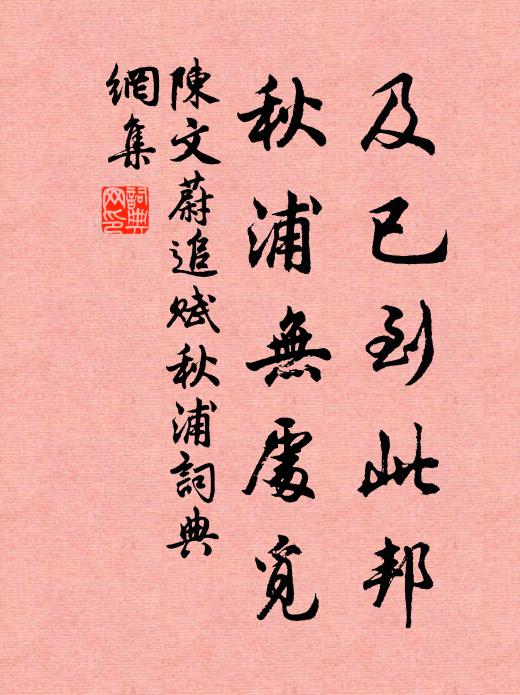 及已到此邦
秋浦無處覓
陳文蔚追賦秋浦詞典
網集
詞典網印